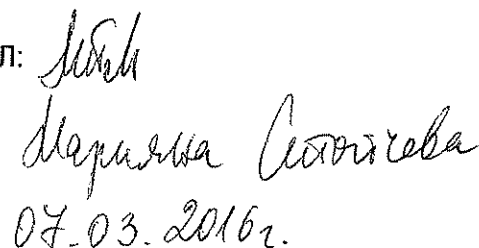 л:
Марияна Стойчева
07.03.2016г.